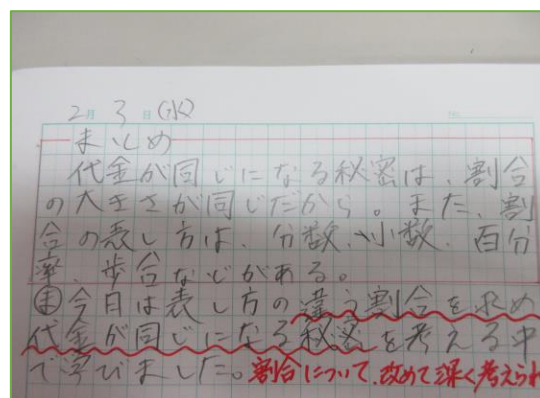 2月3日(水)
まとめ
代金が同じになる秘密は、割合
の大きさが同じだから。また、割
合の表し方は、分数、小数、百分
率、歩合などがある。
ま今日は表し方の違う割合を求め
代金が同じになる秘密を考える中
で学びました。割合について、改めて深く考えられ